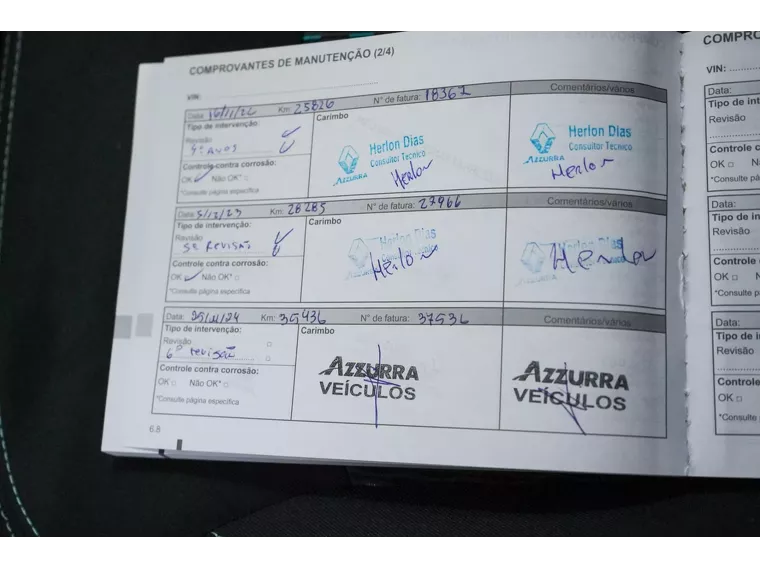 COMPROVANTES DE MANUTENÇÃO (2/4)
VIN:
Data: 16/11/22 Km: 25826 N° de fatura: 18367 Comentários/vários
Tipo de intervenção: Carimbo
Revisão
4º ANOS
Controle contra corrosão:
OK Não OK*
*Consulte página específica
Herlon Dias
Consultor Tecnico
AZZURRA
Herlon
Herlon Dias
Consultor Tecnico
AZZURRA
Herlon
Data: 5/12/23 Km: 28285 N° de fatura: 27966 Comentários/vários
Tipo de intervenção: Carimbo
Revisão
5ª REVISÃO
Controle contra corrosão:
OK Não OK*
*Consulte página específica
Herlon Dias
Herlon
Herlon Dias
Herlon
Data: 25/11/24 Km: 35436 N° de fatura: 37536 Comentários/vários
Tipo de intervenção: Carimbo
Revisão
6º revisão
Controle contra corrosão:
OK Não OK*
*Consulte página específica
AZZURRA
VEÍCULOS
AZZURRA
VEÍCULOS
6.8
COMPRO
VIN:
Data:
Tipo de int
Revisão
Controle
OK
*Consulte p
Data:
Tipo de in
Revisão
Controle
OK
*Consulte
Data:
Tipo de i
Revisão
Controle
OK
*Consulte